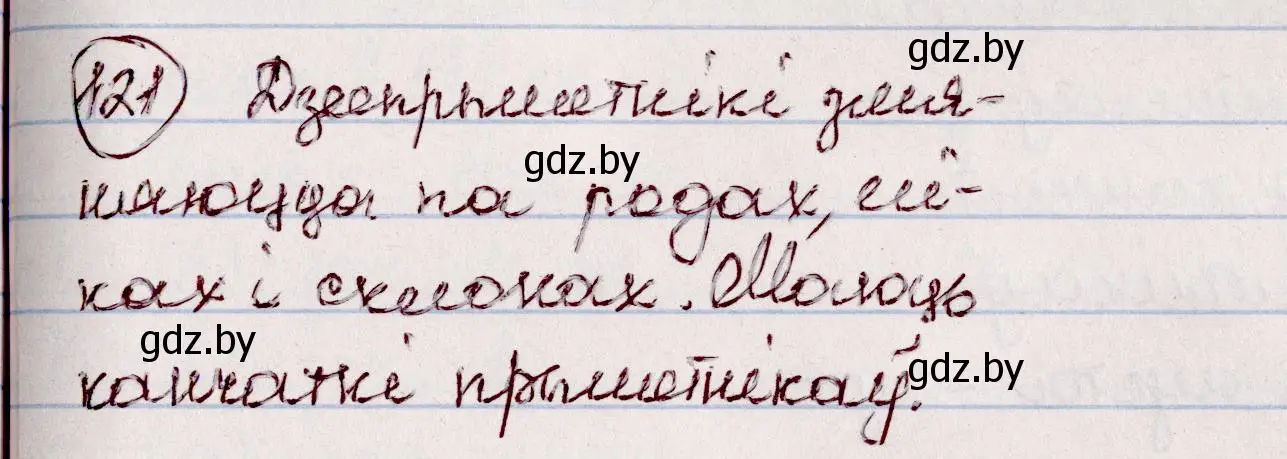 121 Дзеепрыметнікі змя-
няюцца па родах, лі-
ках і склонах. Маюць
канчаткі прыметнікаў.
gdz.by
gdz.by
gdz.by
gdz.by